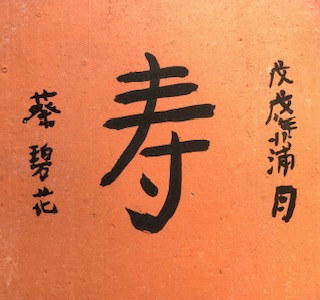 戊戌年蒲月
寿
蔡碧花